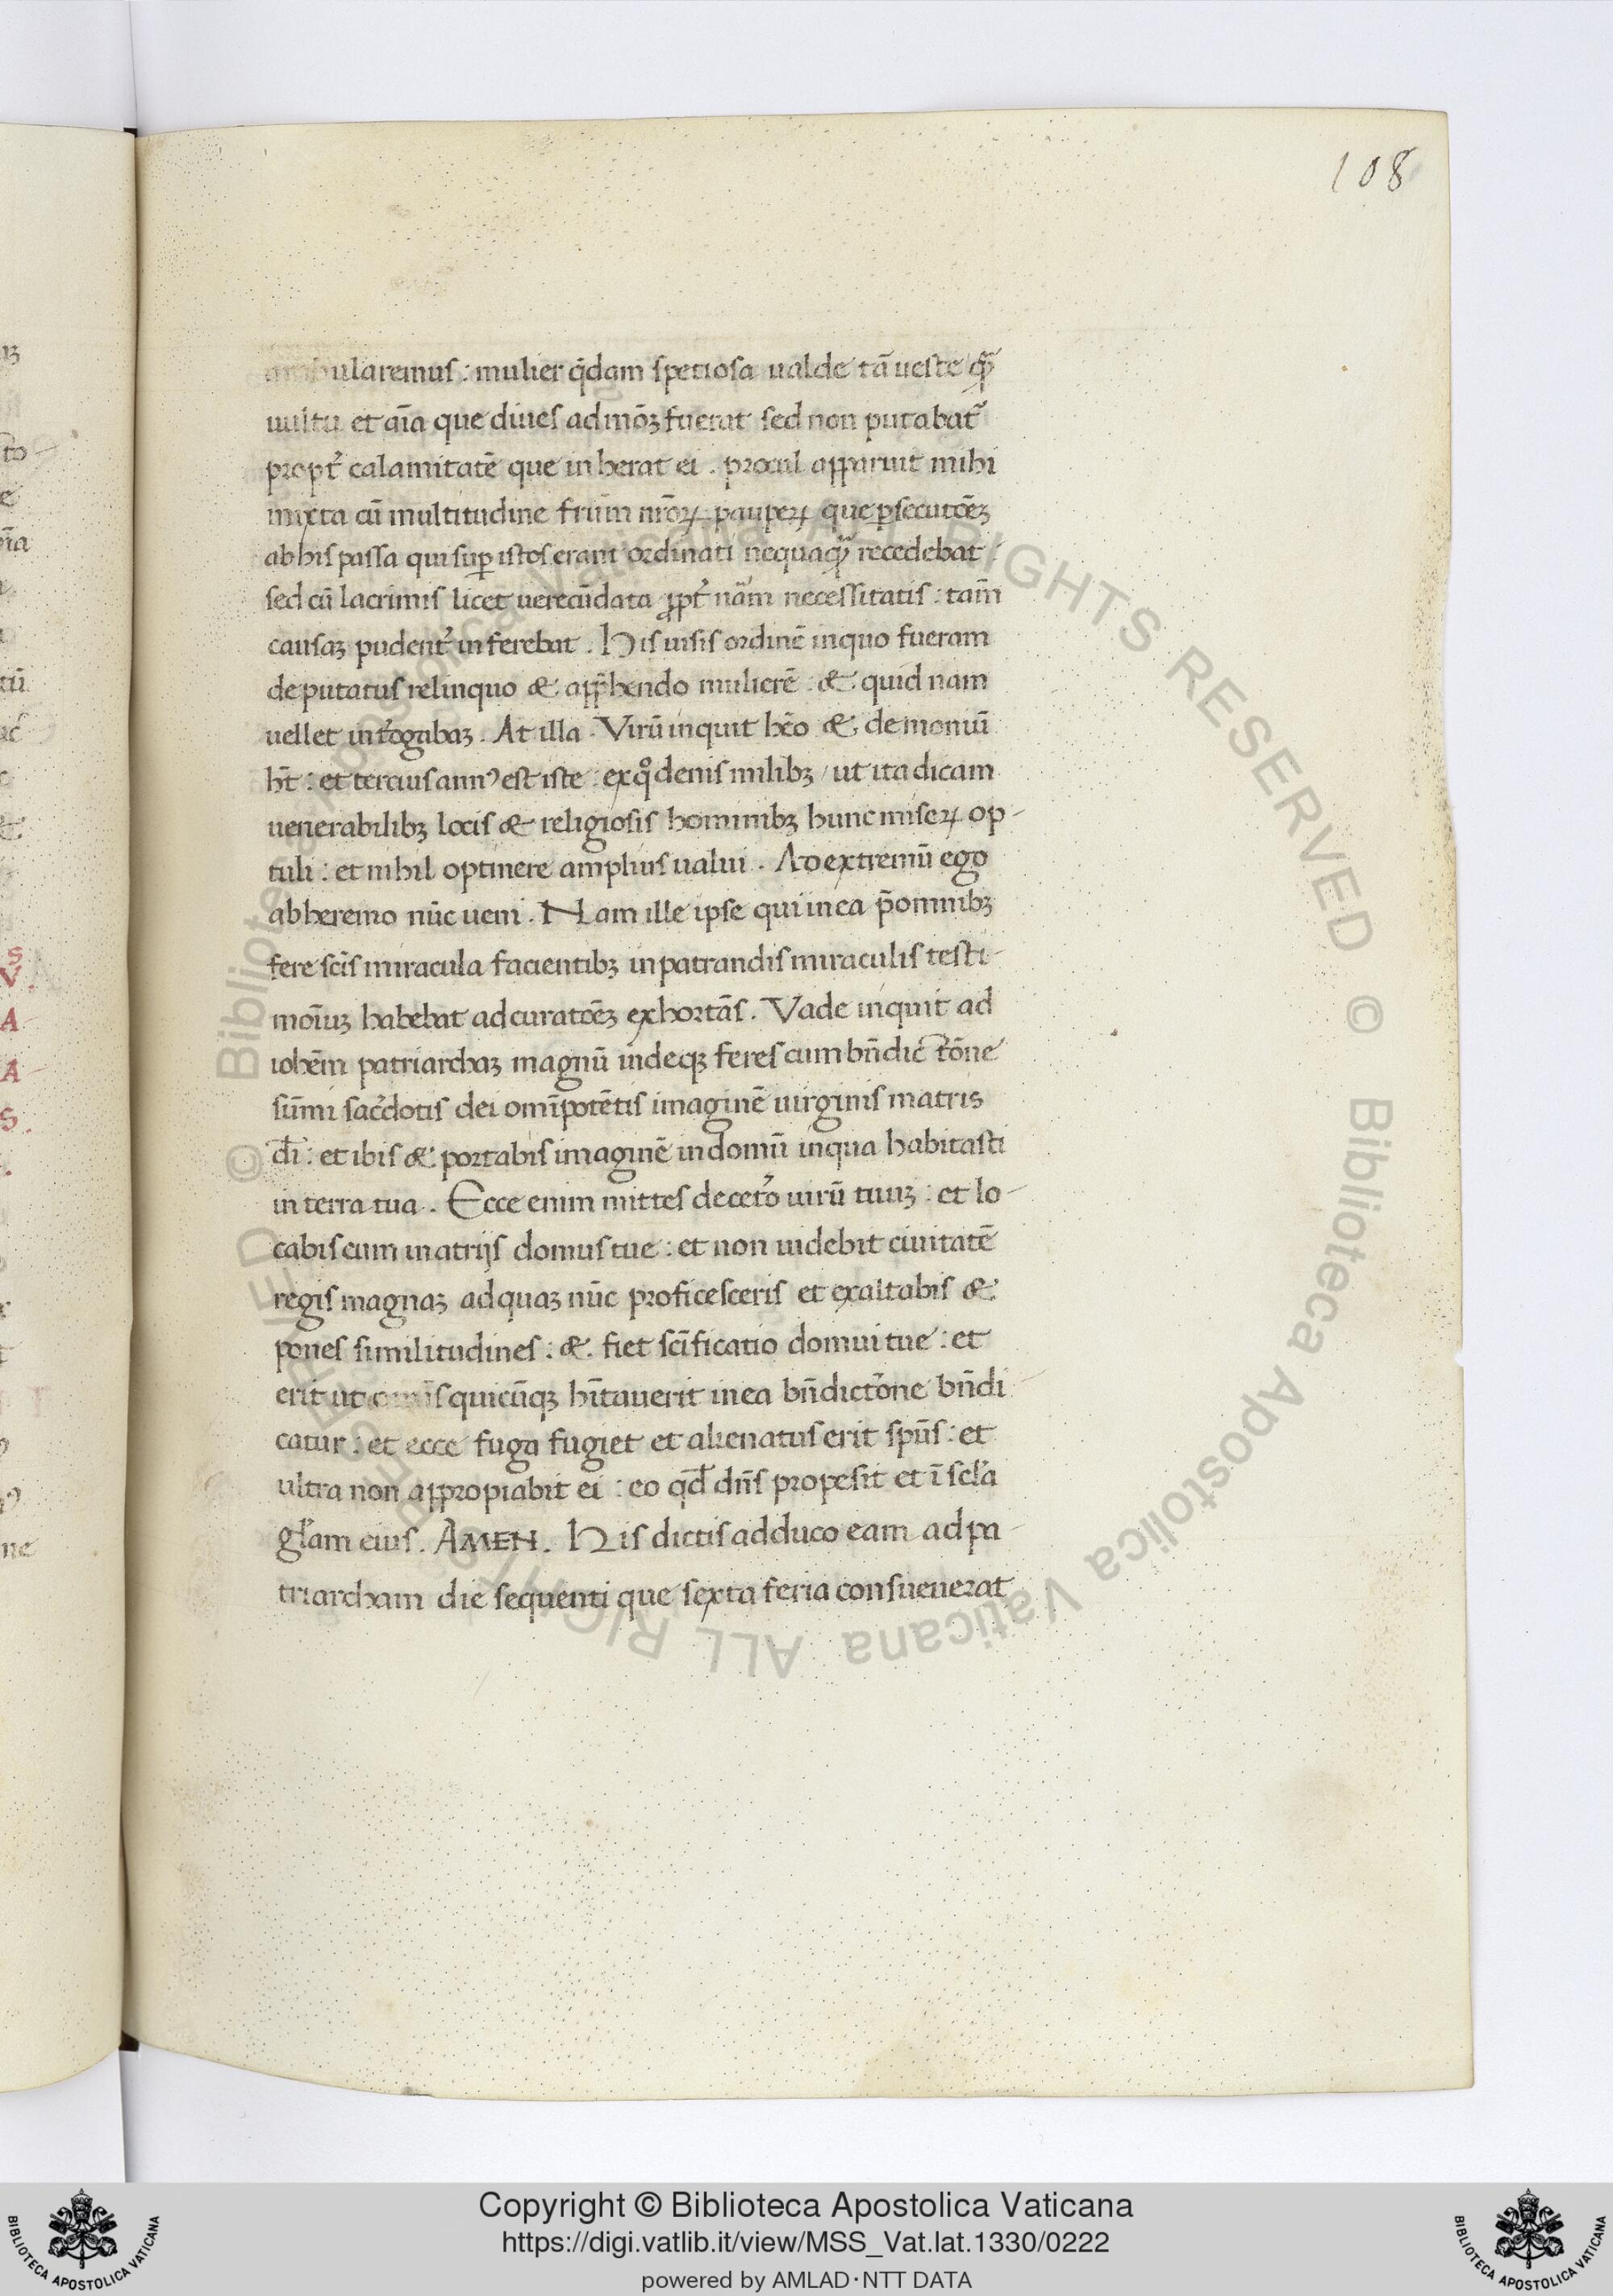 108
ambularemus : mulier q̄dam spetiosa ualde tā ueste q̄ꝫ
uultu et aīa que diues admōꝫ fuerat sed non putabat᷑
propt᷑ calamitatē que inherat ei . procul apparuit mihi
mixta cū multitudine frūm nr̄oꝝ pauperꝝ que ꝑsecutōēꝫ
abhis passa qui suꝑ istos erant ordinati nequaqꝫ̄ recedebat
sed cū lacrimis licet uerecūdata ꝓpt᷑ nāꝫ necessitatis : tam̄
causaꝫ pudent᷑ inferebat . His uisis ordinē inquo fueram
deputatus relinquo & app̄hendo mulierē : & quid nam
uellet int᷑rogabaꝫ . At illa . Virū inquit hēo & demoniū
ht̄ : et tercius annꝰ est iste : exqͦ denis milibꝫ / ut ita dicam
uenerabilibꝫ locis & religiosis hominibꝫ hunc miseꝝ op-
tuli : et nihil optinere amplius ualui . Ad extremū ego
abheremo nūc ueni . Nam ille ipse qui inea p̄ omnibꝫ
fere scīs miracula facientibꝫ inpatrandis miraculis testi-
moīuꝫ habebat ad curatōēꝫ exhortās . Vade inquit ad
iohēm patriarchaꝫ magnū indeqꝫ feres cum bn̄dic tōne
sūmi sac᷑dotis dei omīpotētis imaginē uirginis matris
dī : et ibis & portabis imaginē indomū inqua habitasti
in terra tua . Ecce enim mittes decet᷑o uirū tuuꝫ : et lo-
cabis eum inatrijs domus tue : et non uidebit ciuitatē
regis magnaꝫ adquaꝫ nūc proficesceris et exaltabis &
pones similitudines : & fiet scīficatio domui tue : et
erit ut omīs quicūqꝫ hītauerit inea bn̄dictōne bn̄di
catur : et ecce fuga fugiet et alienatus erit spūs : et
ultra non appropiabit ei : eo qd̄ dn̄s propesit et ī scl̄a
gl̄am eius . AMEN . His dictis adduco eam adpa-
triarcham die sequenti que sexta feria consueuerat
Copyright © Biblioteca Apostolica Vaticana
https://digi.vatlib.it/view/MSS_Vat.lat.1330/0222
powered by AMLAD·NTT DATA
BIBLIOTECA APOSTOLICA VATICANA
BIBLIOTECA APOSTOLICA VATICANA
© Biblioteca Apostolica Vaticana ALL RIGHTS RESERVED
© Biblioteca Apostolica Vaticana ALL RIGHTS RESERVED